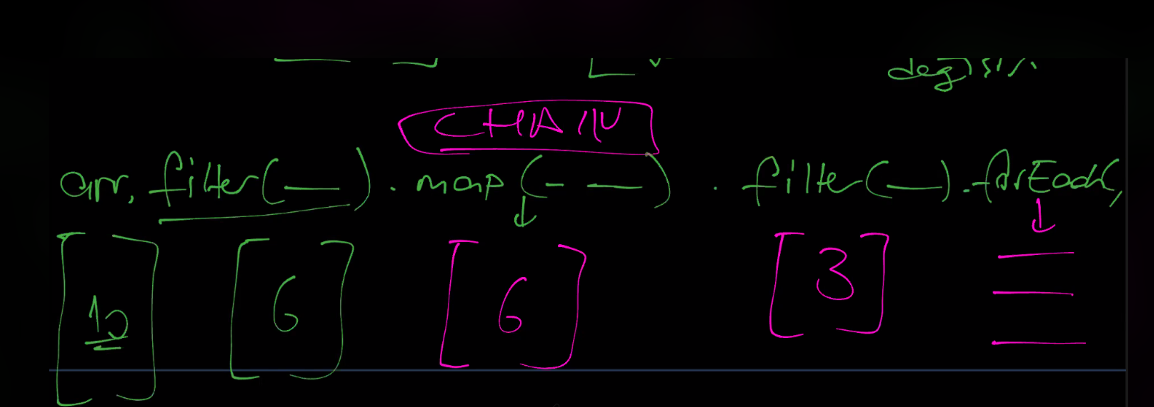 CHAIN
arr. filter(—). map(- —) . filter(—). forEach(
[10] [6] [6] [3]